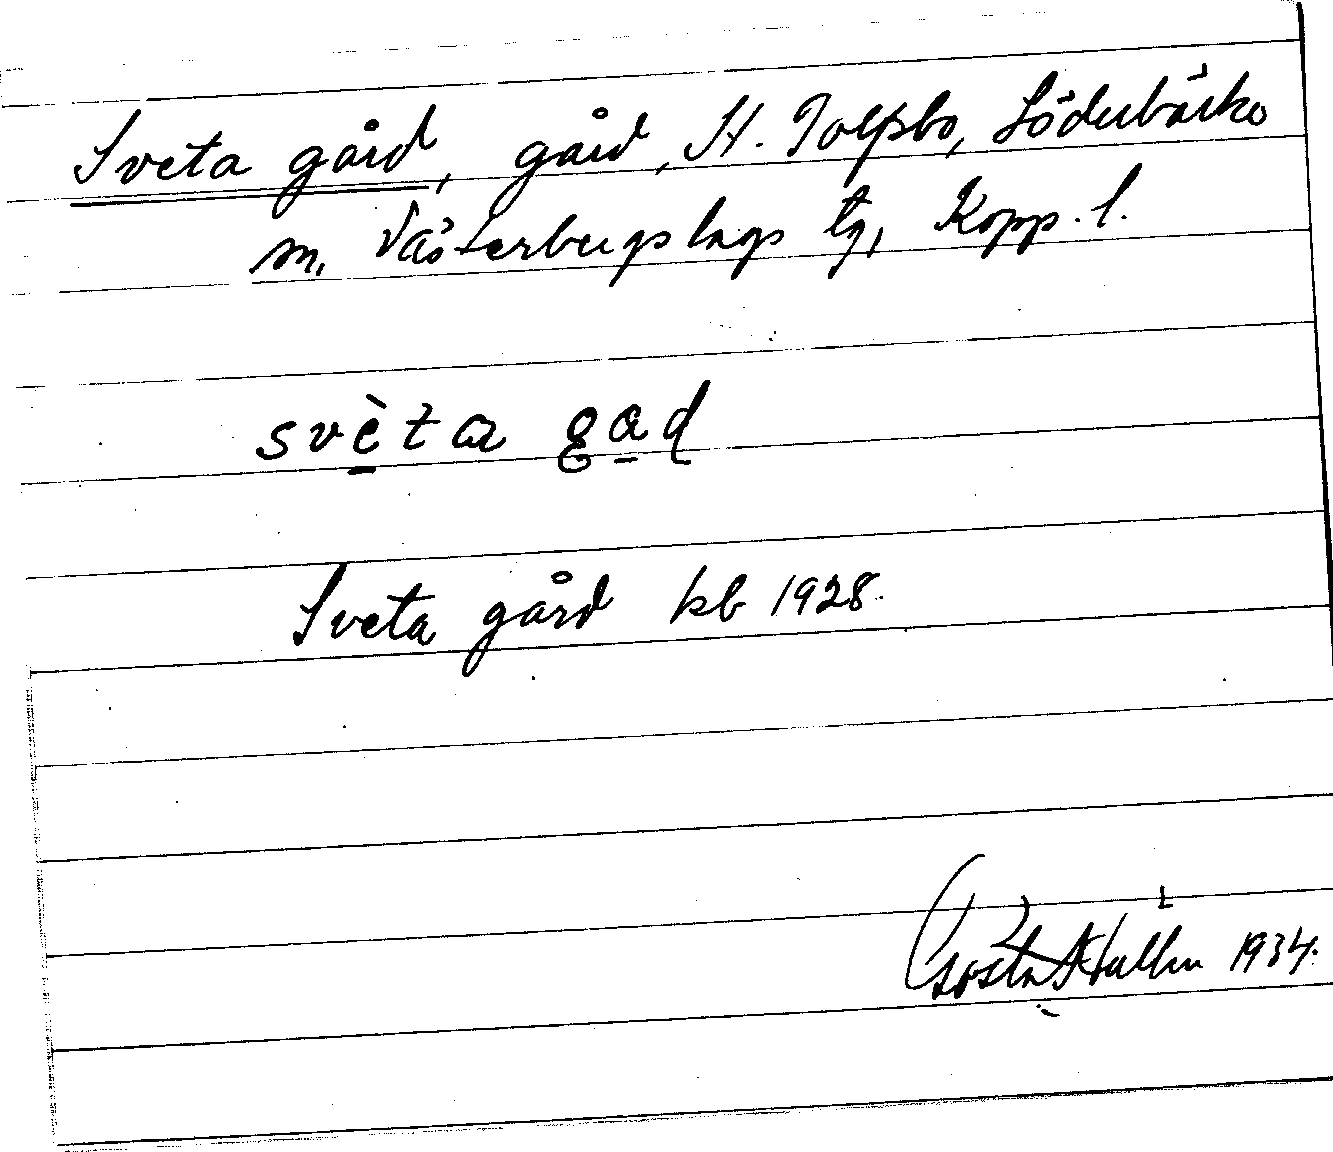 Sveta gård, gård, St. Tolfsbo, Söderbärke
sn, Västerbergslags tg, Kopp. l.
svèta gad
Sveta gård kb 1928.
Gösta Hallin 1934.